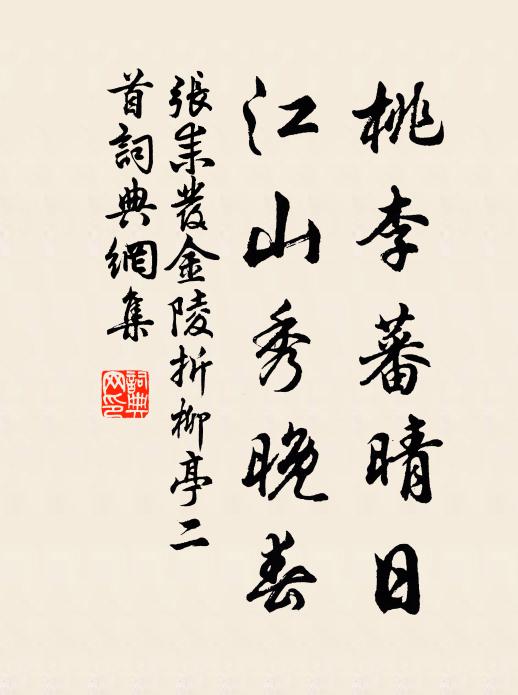 桃李蕃晴日
江山秀晚春
張耒發金陵折柳亭二
首詞典網集
詞典網印